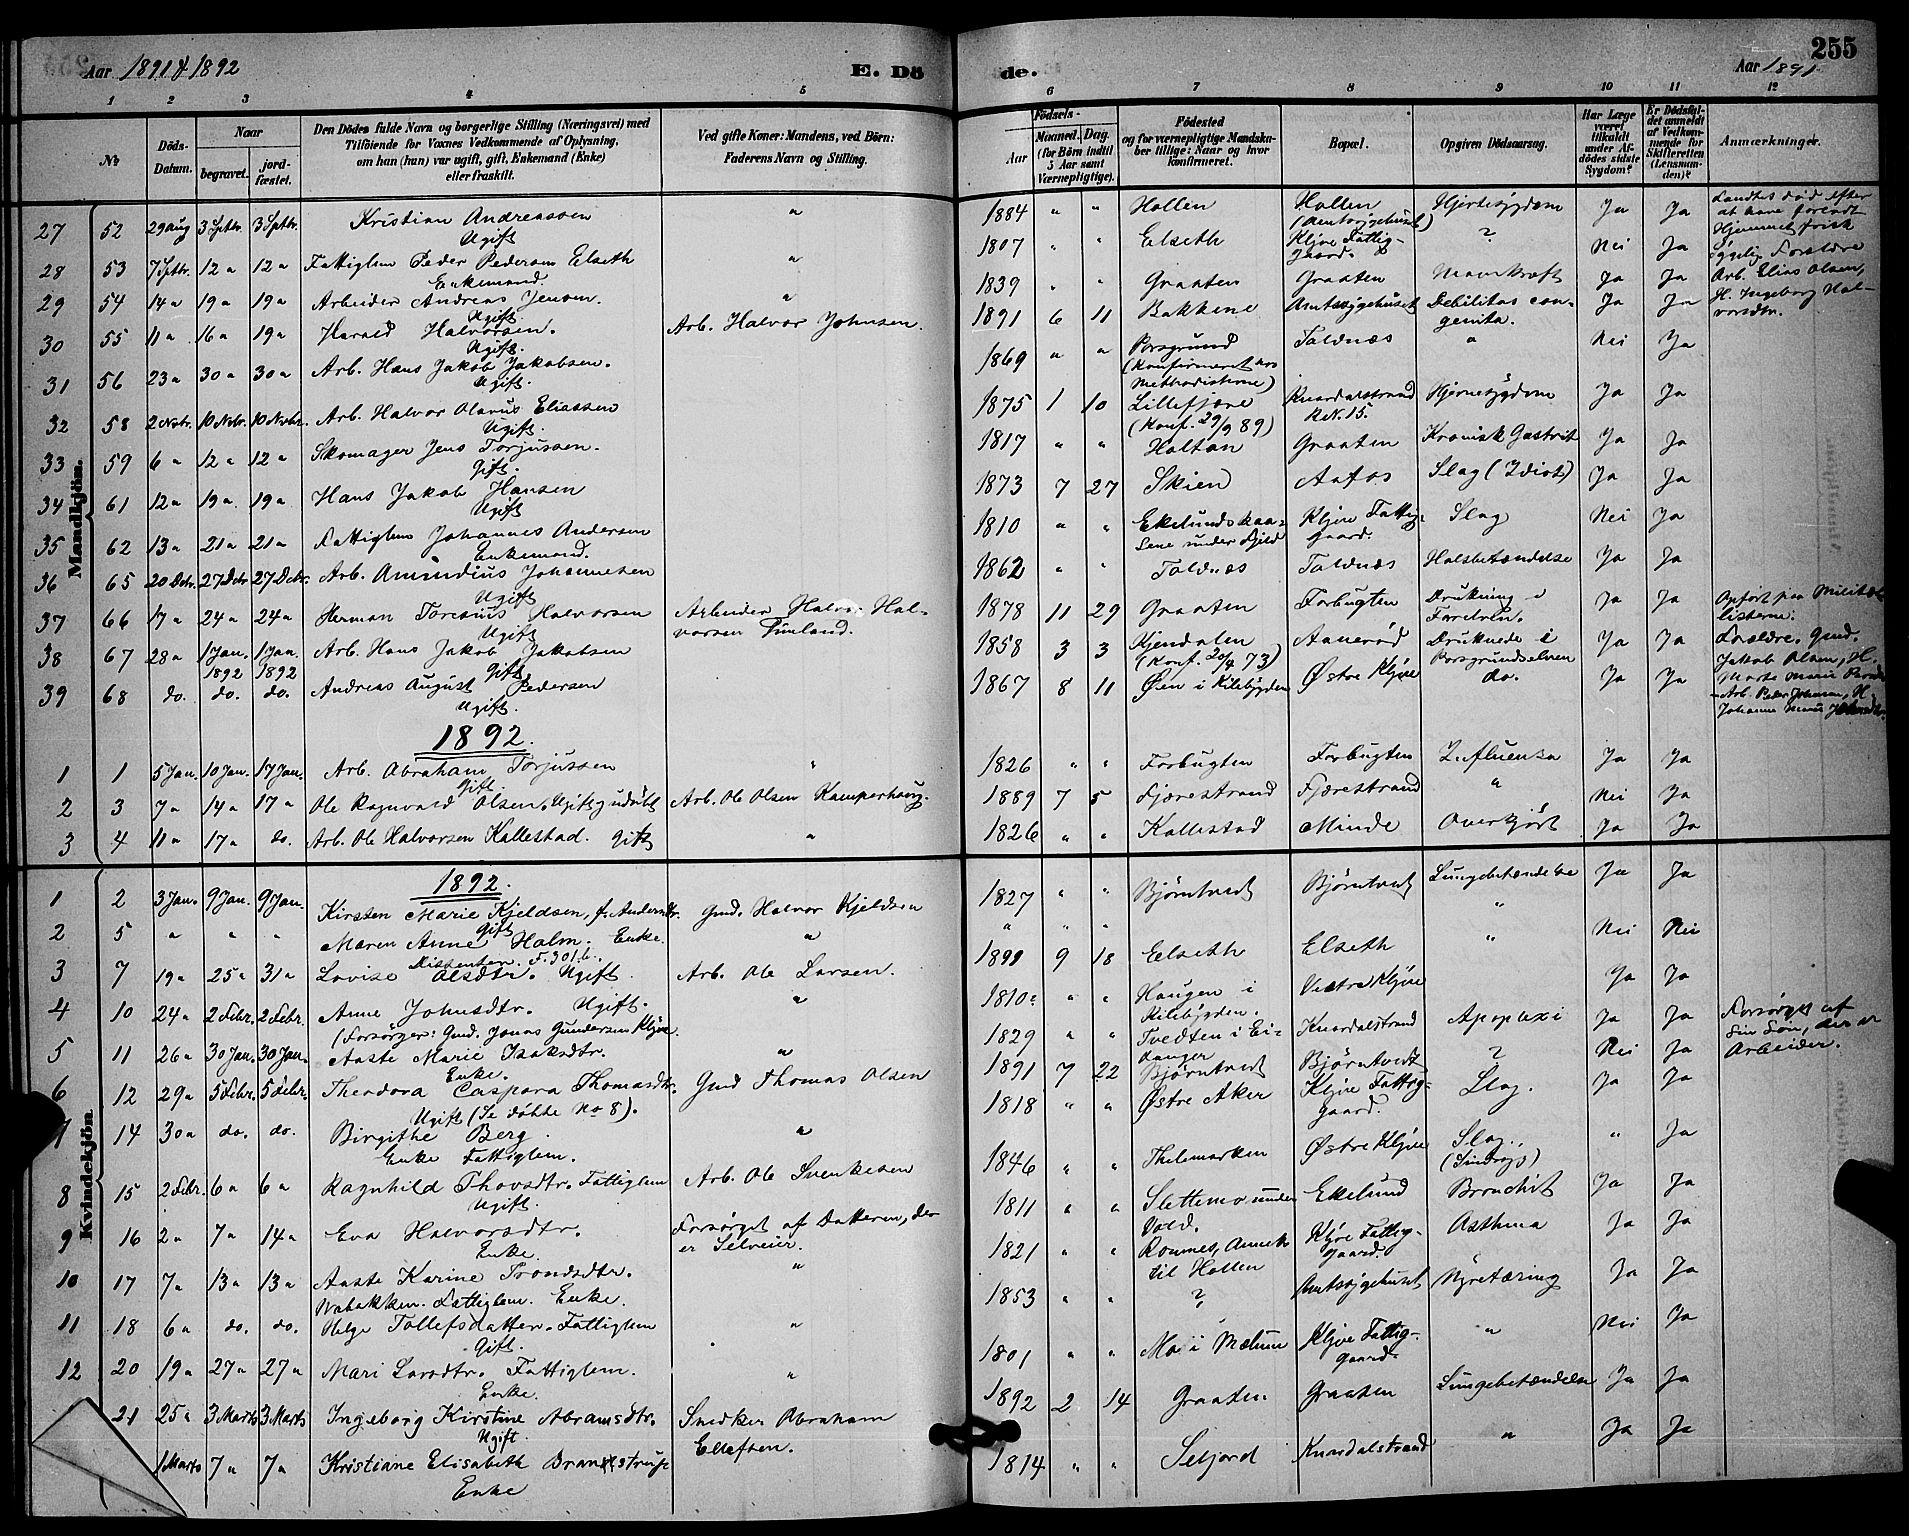 Aar 1891 & 1892
E. Dö
de.
Aar 1891
255
1 2 3 4 5 6 7 8 9 10 11 12
№
Döds-Datum.
Naar
begravet.
jord-fæstet.
Den Dödes fulde Navn og borgerlige Stilling (Næringsvei) med
Tilföiende for Voxnes Vedkommende af Oplysning,
om han (hun) var ugift, gift, Enkemand (Enke)
eller fraskilt.
Ved gifte Koner: Mandens, ved Börn:
Faderens Navn og Stilling.
Födsels-
Aar
Maaned. Dag.
(for Börn indtil
5 Aar samt
Værnepligtige).
Födested
og for værnepligtige Mandska-
ber tillige: Naar og hvor
konfirmeret.
Bopæl.
Opgiven Dödsaarsag.
Har Læge
været
tilkaldt
under Af-
dödes sidste
Sygdom?
Er Dödsfal-
det anmeldt
af Vedkom-
mende for
Skifteretten
(Lensman-
den)?
Anmærkninger.
Mandkjön.
27 52 29 Aug 3 Septbr. 3 Septbr. Kristian Andreassen Ugift " 1884 " " Hollen Hollen (Amtssygehuset) Hjertesygdom Ja Ja
28 53 7 Septbr. 12 " 12 " Fattiglem Peder Pedersen Elseth Enkemand. " 1807 " " Elseth Kljve Fattig-gaard. ? Nei Ja
29 54 14 " 19 " 19 " Arbeider Andreas Jensen. Ugift " 1839 " " Graaten Graaten Mavekræft Ja Ja
30 55 11 " 16 " 19 " Harald Halvorsen. Ugift. Arb. Halvor Johnsen. 1891 6 11 Bakkene Amtssygehuset Debilitas con-genita. Ja Ja
31 56 23 " 30 " 30 " Arb. Hans Jakob Jakobsen. Ugift. 1869 " " Porsgrund (Konfirmeret hos Methodisterne) Toldnæs " Nei Ja
32 58 2 Novbr. 10 Novbr. 10 Novbr. Arb. Halvor Olavus Eliassen Ugift. 1875 1 10 Lillefjære (Konf. 29/9 89) Knardalstrand R.N. 15. Hjernesygdom Ja Ja
33 59 6 " 12 " 12 " Skomager Jens Torjussen. Gift. 1817 " " Holtan Graaten Kronisk Gastrit Ja Ja
34 61 12 " 19 " 19 " Hans Jakob Hansen Ugift 1873 7 27 Skien Aafos Slag (Idiot) Ja Ja
35 62 13 " 21 " 21 " Fattiglem Johannes Andersen Enkemand. 1810 " " Ekelundskaa-sene under Fjeld Kljve Fattig-gaard. Slag Nei Ja
36 65 20 Decbr. 27 Decbr 27 Decbr. Arb. Amundius Johannesen Ugift 1862 " " Toldnæs Toldnæs Halsbetændelse Ja Ja
37 66 17 " 24 " 24 " Herman Toresius Halvorsen Ugift Arbeider Halvor Hal-vorsen Funland. 1878 11 29 Graaten Forbugten Drukning i Farelven. Ja Ja
38 67 28 " 1 Jan. 1892 1 Jan. 1892 Arb. Hans Jakob Jakobsen Gift 1858 3 3 Kjendalen (Konf. 20/4 73) Aanerød Druknede i Porsgrundselven Ja Ja
39 68 do. do. do. Andreas August Pedersen Ugift. 1867 8 11 Øen i Kilebygden Østre Kljve do. Ja Ja
Fandtes død efter
at have forladt
Hjemmet frisk
Forældre
Arb. Elias Olsen,
H. Ingeborg Hal-
vorsdtr.
Opført paa Militær-
listerne.
Forældre. Gmd.
Jakob Olsen, H.
Marte Marie
Arb. Peder Johnsen, H.
Johanne Marie
1892.
1 1 5 Jan. 10 Jan. 17 Jan. Arb. Abraham Torjussen Gift. " 1826 " " Forbugten Forbugten Influensa Ja Ja
2 3 7 " 14 " 17 " Ole Ragnvald Olsen. Ugift, udøbt Arb. Ole Olsen Kamperhaug. 1889 7 5 Fjærestrand Fjærestrand " Nei Ja
3 4 11 " 17 " do. Arb. Ole Halvorsen Kallestad. Gift " 1826 " " Kallestad Minde Overkjørt Ja Ja
Kvindekjön
1892.
1 2 3 Jan. 9 Jan. 9 Jan. Kirsten Marie Kjeldsen, f. Andersdtr. Gift Gmd. Halvor Kjeldsen 1827 " " Bjørntvedt Bjørntvedt Lungebetændelse Ja Ja
2 5 " " " Maren Anne Holm. Enke. Dissenter. F. 301 b. " " " " " Nei Nei
3 7 19 " 25 " 31 " Lovise Olsdtr. Ugift. Arb. Ole Larsen. 1891 9 18 Elseth Elseth " Ja Ja
4 10 24 " 2 Febr. 2 Febr. Anne Johnsdtr. Ugift. (Forsørger: Gmd. Jonas Gundersen Kljve. " 1810 " " Haugen i Kilebygden. Vestre Kljve
5 11 26 " 30 Jan. 30 Jan. Aaste Marie Isaksdtr. Enke. " 1829 " " Tvedten i Ei-danger Knardalstrand Apoplexi Ja Ja Forsørget af sin Søn, der er Arbeider.
6 12 29 " 5 Febr. 5 Febr. Theodora Caspara Thomasdtr. Ugift (Se døbte No 8). Gmd Thomas Olsen 1891 7 22 Bjørntvedt Bjørntvedt ? Nei Ja
7 14 30 " do. do. Birgithe Berg. Enke Fattiglem. " 1818 " " Østre Aker Kljve Fattig-gaard. Slag. Ja Ja
8 15 2 Febr. 6 " 6 " Ragnhild Thovsdtr. Fattiglem Ugift. Arb. Ole Svenkesen 1846 " " Thelemarken Østre Kljve Slag. (Sindsyg) " Ja
9 16 2 " 7 " 14 " Eva Halvorsdtr. Enke. Forsørget af Datteren, der er Selveier. 1811 " " Slettemo under Vold. Ekelund Bronchit Ja Ja
10 17 7 " 13 " 13 " Aaste Karine Trondsdtr. Fattiglem. Enke. " 1821 " " Romnes, Annek til Hollen Kljve Fattig-gaard. Asthma Ja Ja
11 18 6 " do. do. Helge Tollefsdatter. Fattiglem Gift. " 1853 " " ? Amtssygehuset Nyretæring Ja Ja
12 20 19 " 27 " 27 " Mari Larsdtr. Fattiglem. Enke. " 1801 " " Mo i Mælum Kljve Fattig-gaard. " Nei Ja
21 25 " 3 Marts 3 Marts Ingeborg Kirstine Abramsdtr. Ugift. Snedker Abraham Ellefsen. 1892 2 14 Graaten Graaten Lungebetændelse Ja Ja
1 Marts 7 " 7 " Kristiane Elisabeth Enke 1814 " " Seljord Knardalstrand " Ja Ja